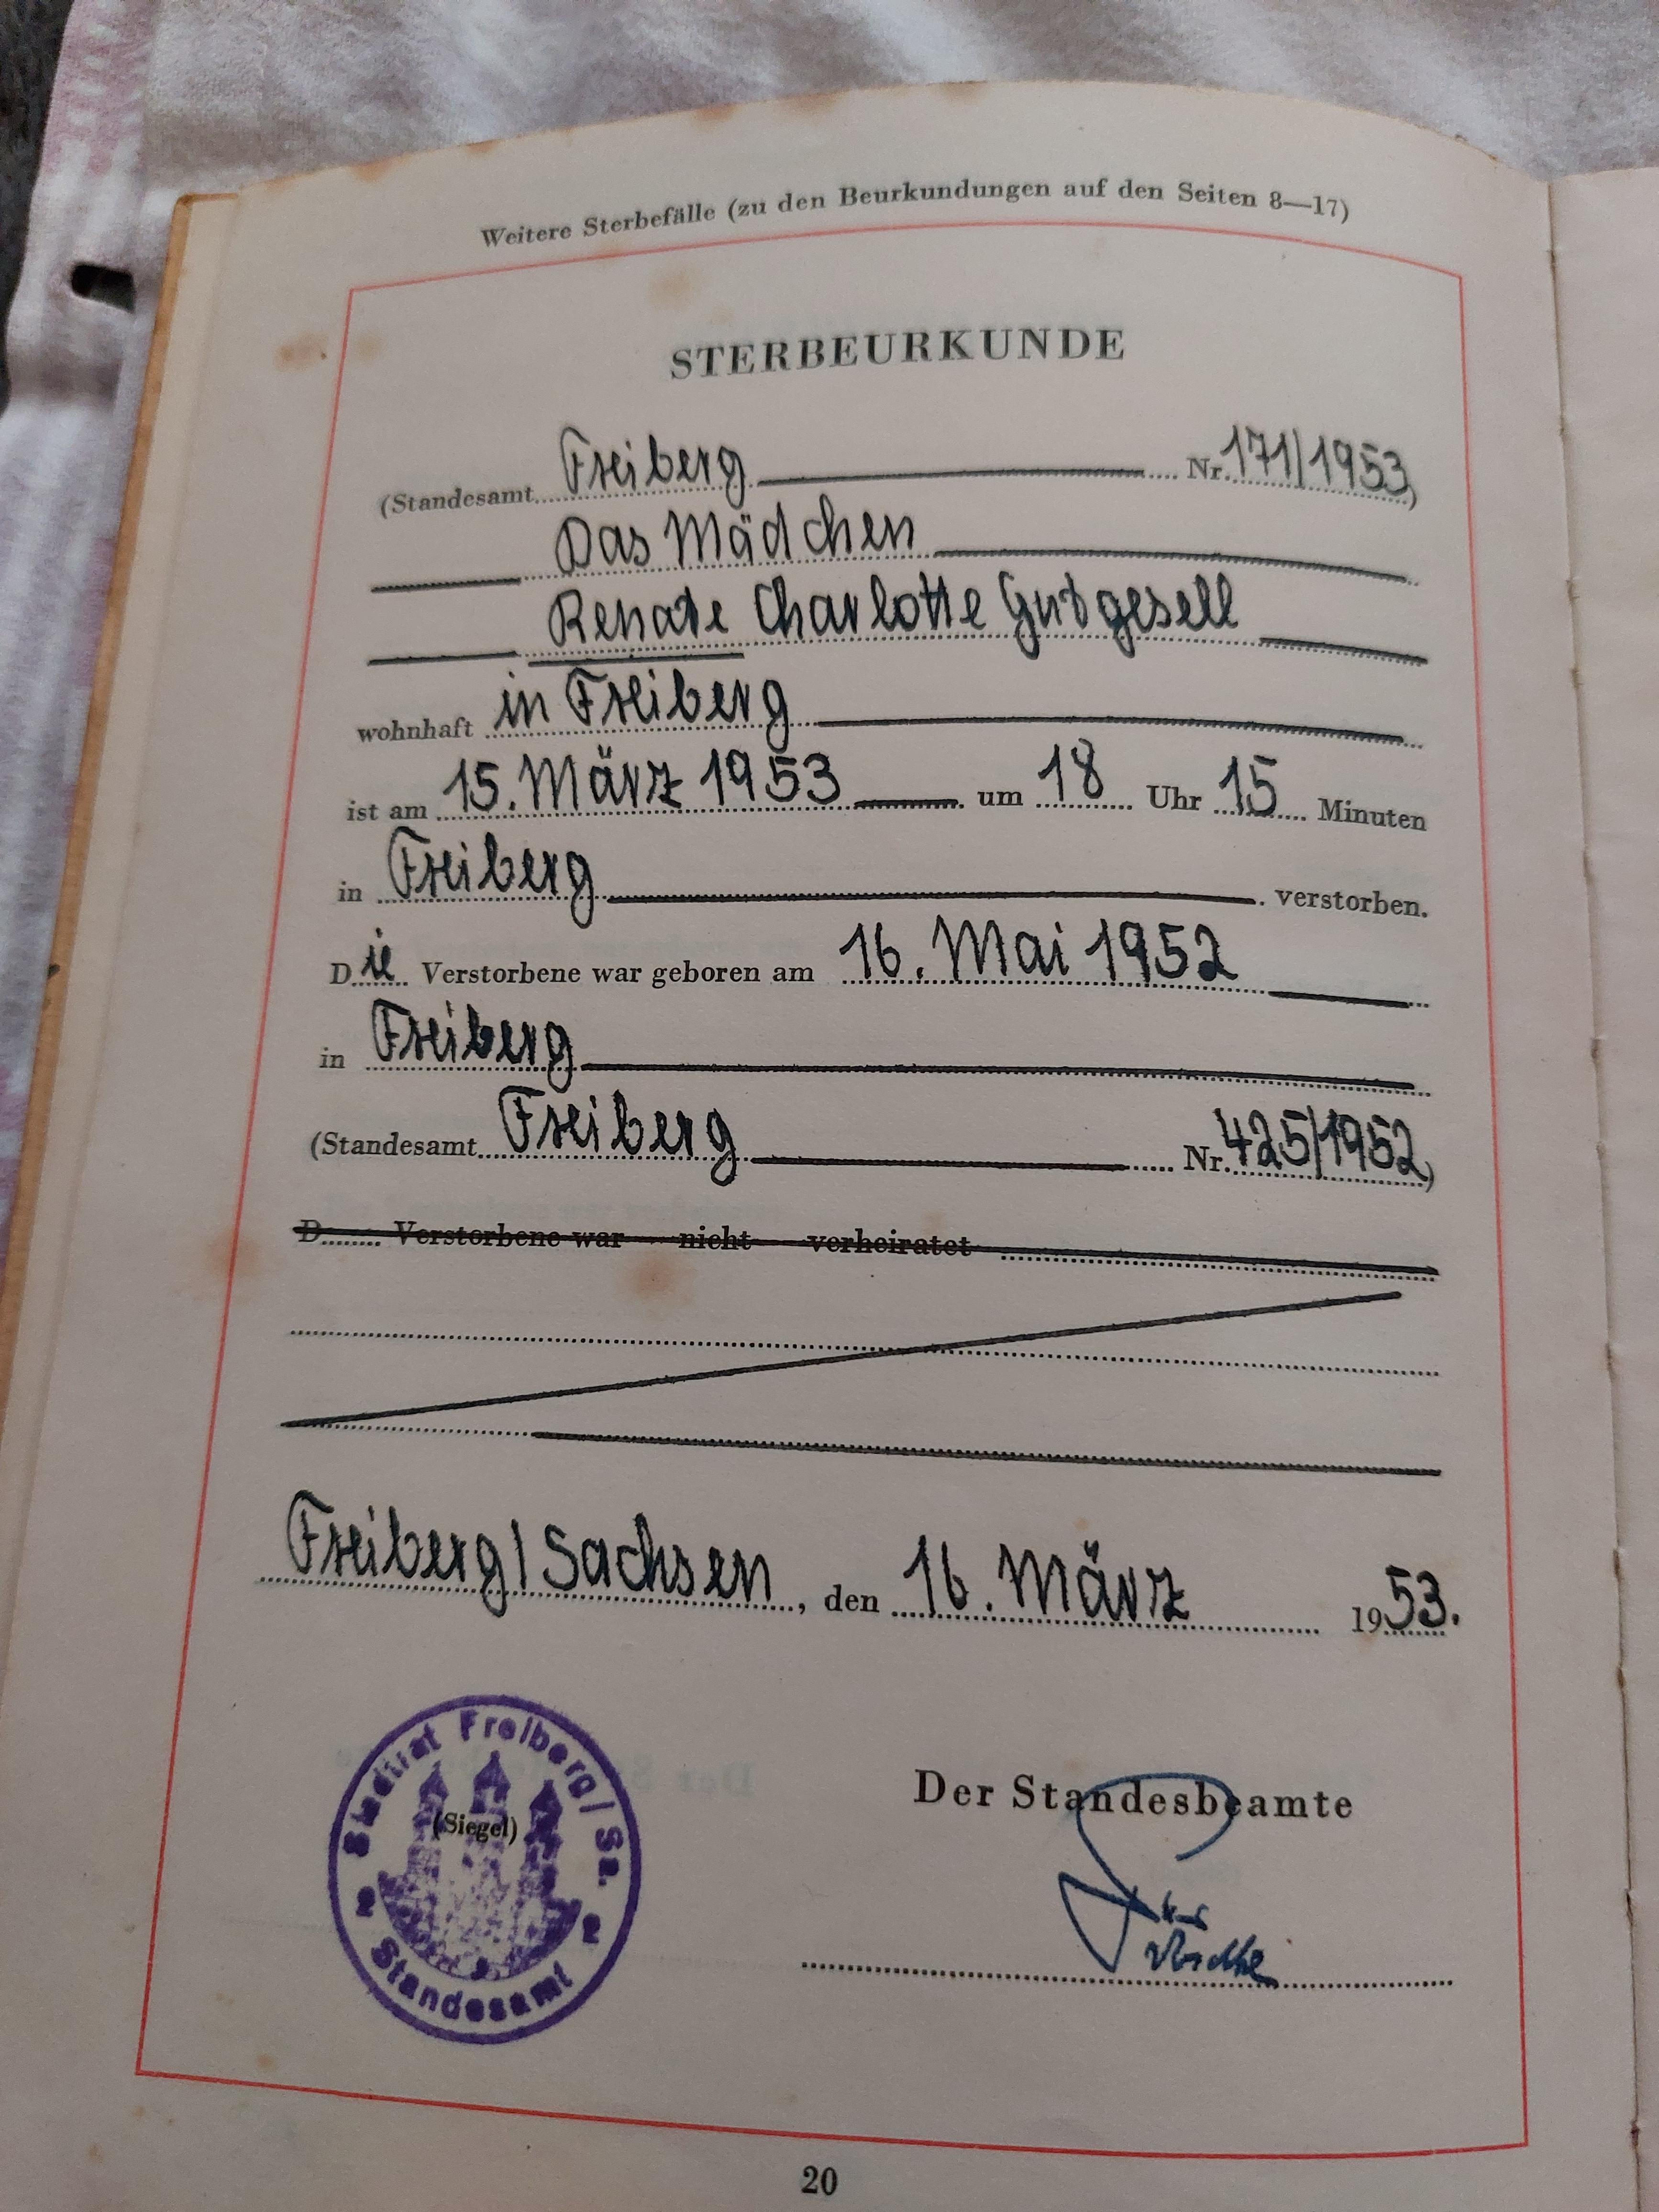 Weitere Sterbefälle (zu den Beurkundungen auf den Seiten 8—17)
STERBEURKUNDE
(Standesamt Freiberg Nr. 171/1953)
Das Mädchen
Renate Charlotte Gutgesell
wohnhaft in Freiberg
ist am 15. März 1953 um 18 Uhr 15 Minuten
in Freiberg verstorben.
Die Verstorbene war geboren am 16. Mai 1952
in Freiberg
(Standesamt Freiberg Nr. 425/1952)
D Verstorbene war nicht verheiratet
Freiberg/Sachsen, den 16. März 1953.
Stadtrat Freiberg/Sa.
(Siegel)
2 2
Standesamt
Der Standesbeamte
20